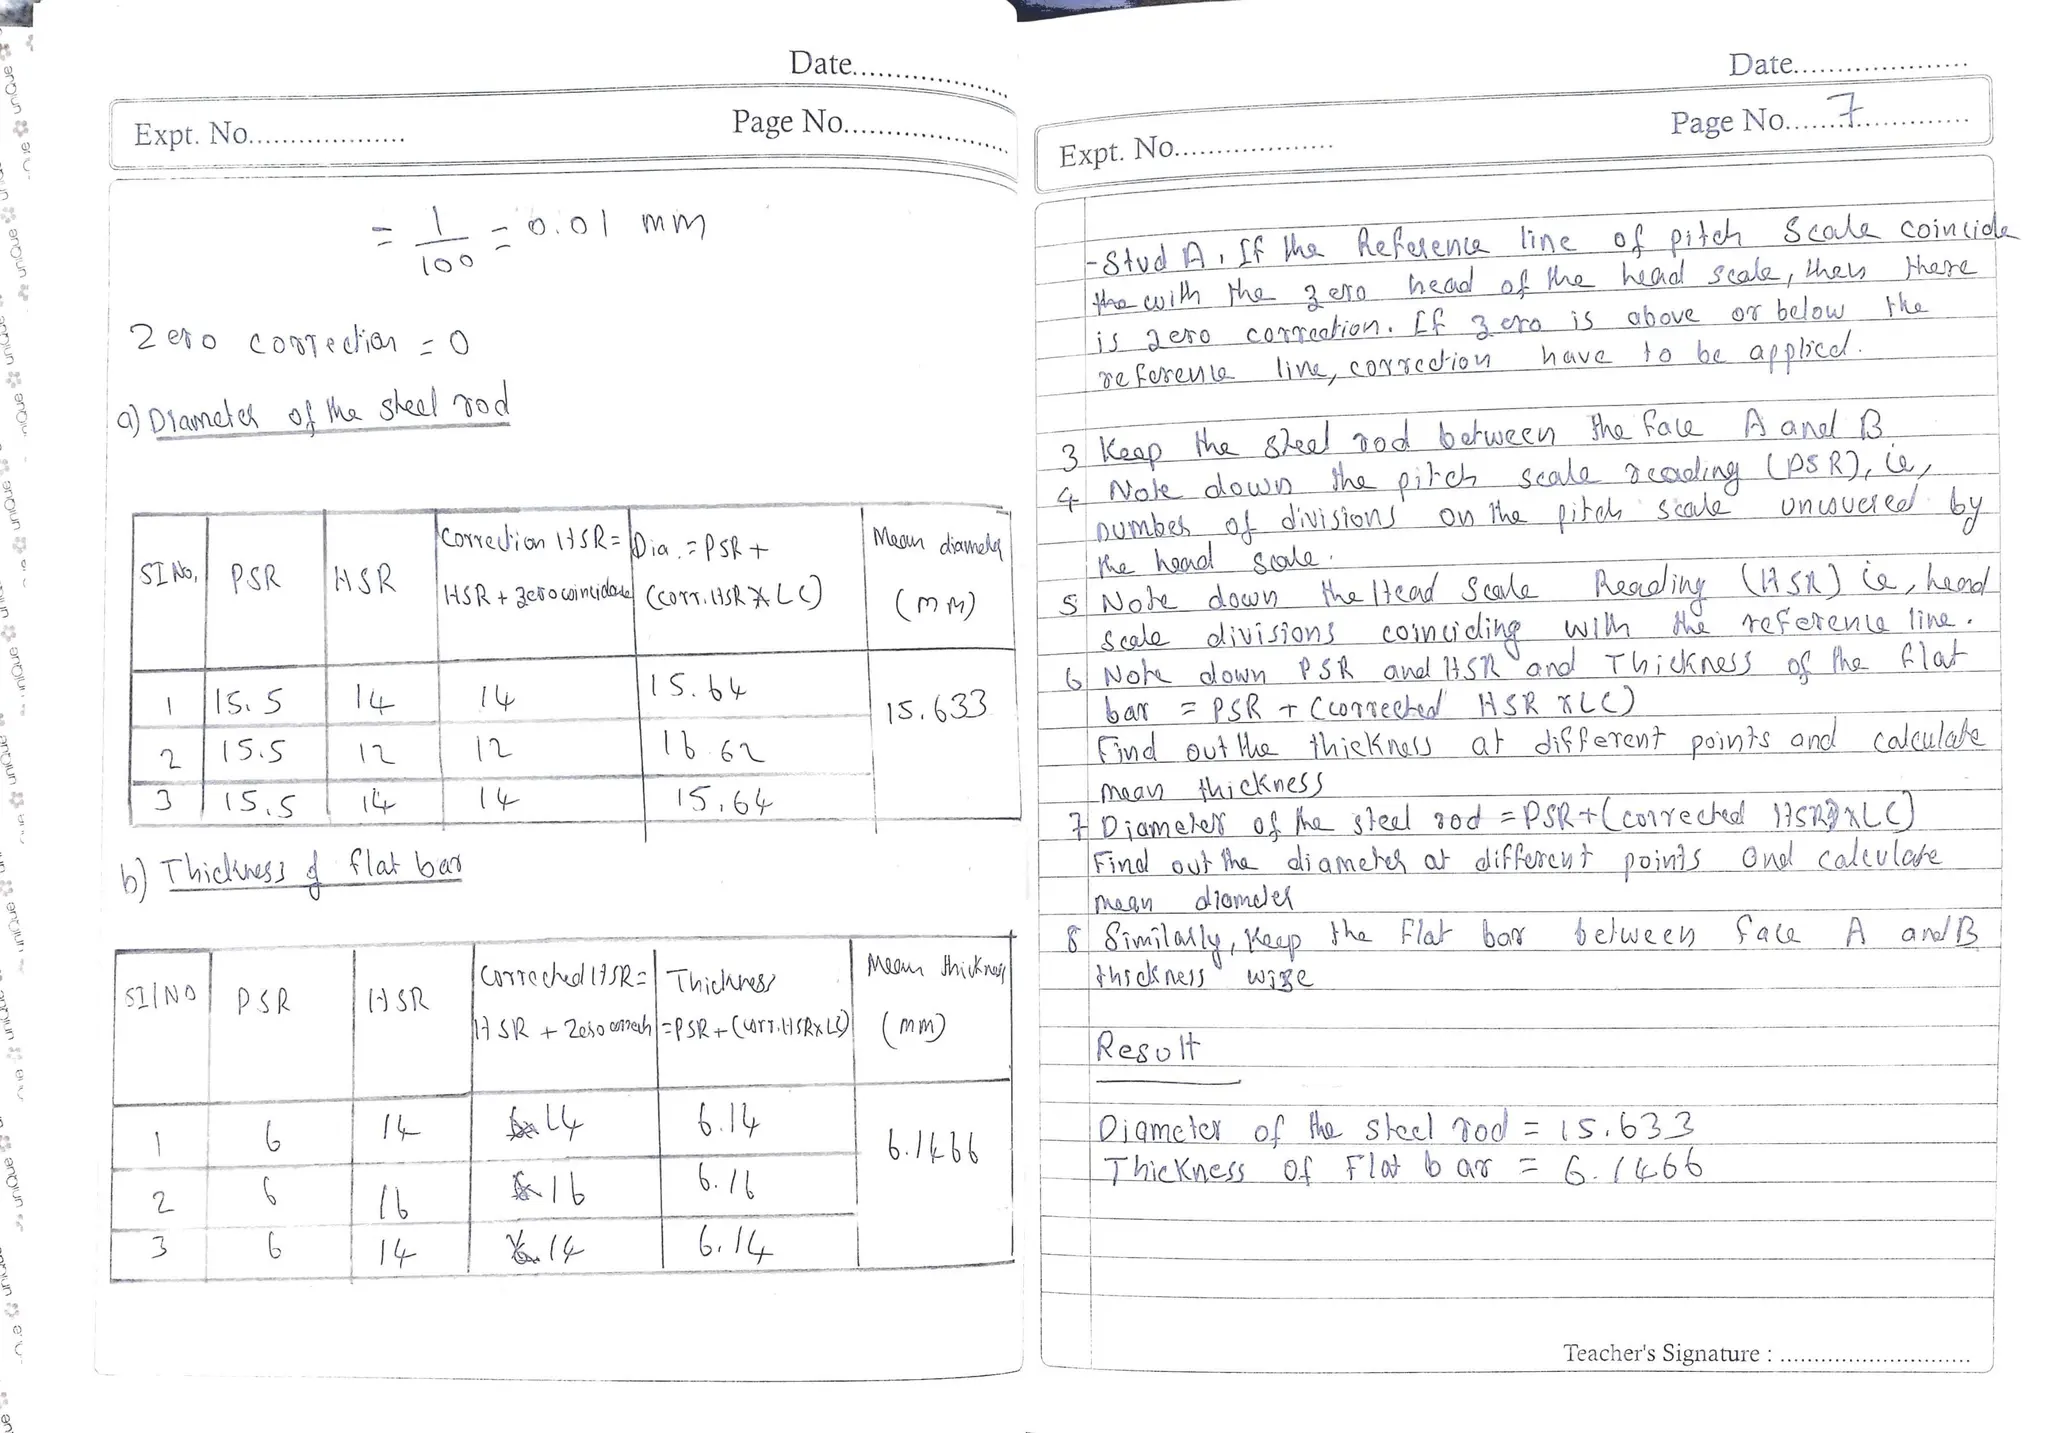 Date....................
Expt. No................... Page No....................
= 1/100 = 0.01 mm
Zero correction = 0
a) Diameter of the steel rod
SI No. PSR HSR Correction HSR = HSR + zero coincidence Dia. = PSR + (corr. HSR X LC) Mean diameter (mm)
1 15.5 14 14 15.64 15.633
2 15.5 12 12 16.62
3 15.5 14 14 15.64
b) Thickness of flat bar
SI/NO PSR HSR Corrected HSR = HSR + Zero correch Thickness = PSR + (corr. HSR x LC) Mean thickness (mm)
1 6 14 14 6.14 6.1466
2 6 16 16 6.16
3 6 14 14 6.14
Date....................
Expt. No................... Page No. 7
- Stud A. If the Reference line of pitch Scale coincide
with the zero head of the head scale, then there
is zero correction. If zero is above or below the
reference line, correction have to be applied.
3 Keep the steel rod between the face A and B
4 Note down the pitch scale reading (PSR), ie,
number of divisions on the pitch scale uncovered by
the head scale.
5 Note down the Head Scale Reading (HSR) ie, head
scale divisions coinciding with the reference line.
6 Note down PSR and HSR and Thickness of the flat
bar = PSR + (corrected HSR x LC)
Find out the thickness at different points and calculate
mean thickness
7 Diameter of the steel rod = PSR + (corrected HSR x LC)
Find out the diameter at different points and calculate
mean diameter
8 Similarly, Keep the Flat bar between face A and B
thickness wise
Result
Diameter of the steel rod = 15.633
Thickness of Flat bar = 6.1466
Teacher's Signature : ............................